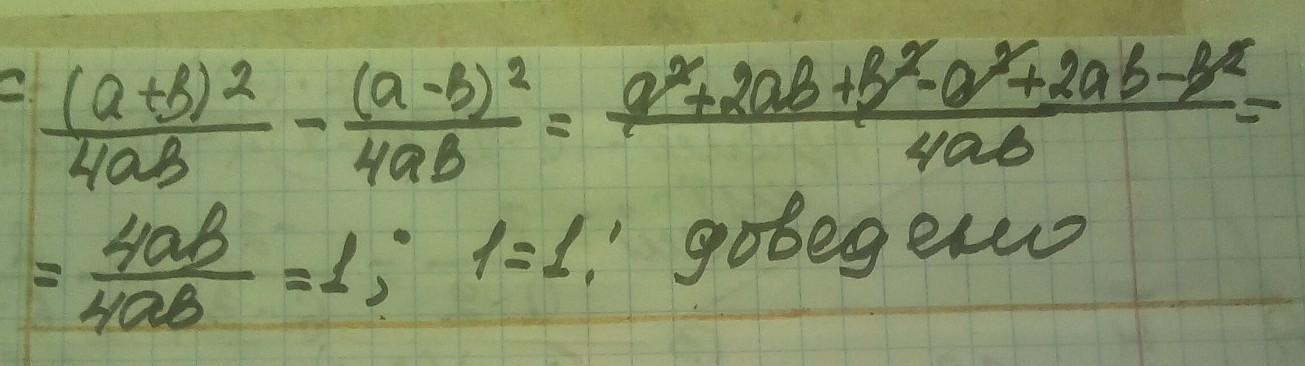 = (a+b)²/4ab - (a-b)²/4ab = a²+2ab+b²-a²+2ab-b²/4ab =
= 4ab/4ab = 1; 1=1; доведено